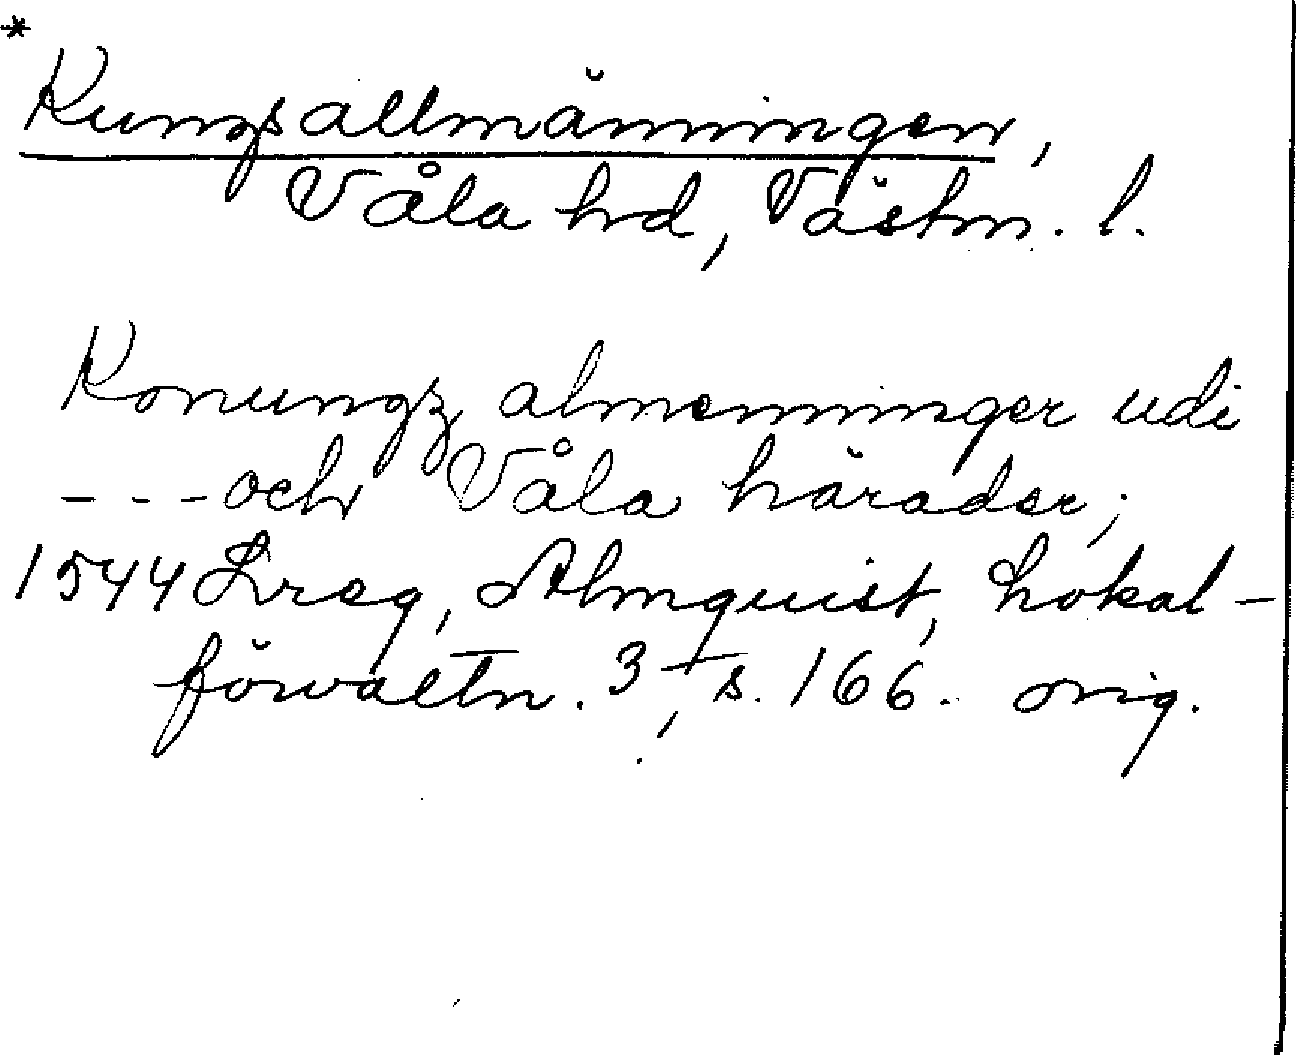 *
Kungsallmänningen,
Våla hd, Västm. l.
Konungz almenninger udi
--- och Våla härader;
1544 Lreg, Almquist, Lokal-
förvaltn. 3, s. 166. orig.